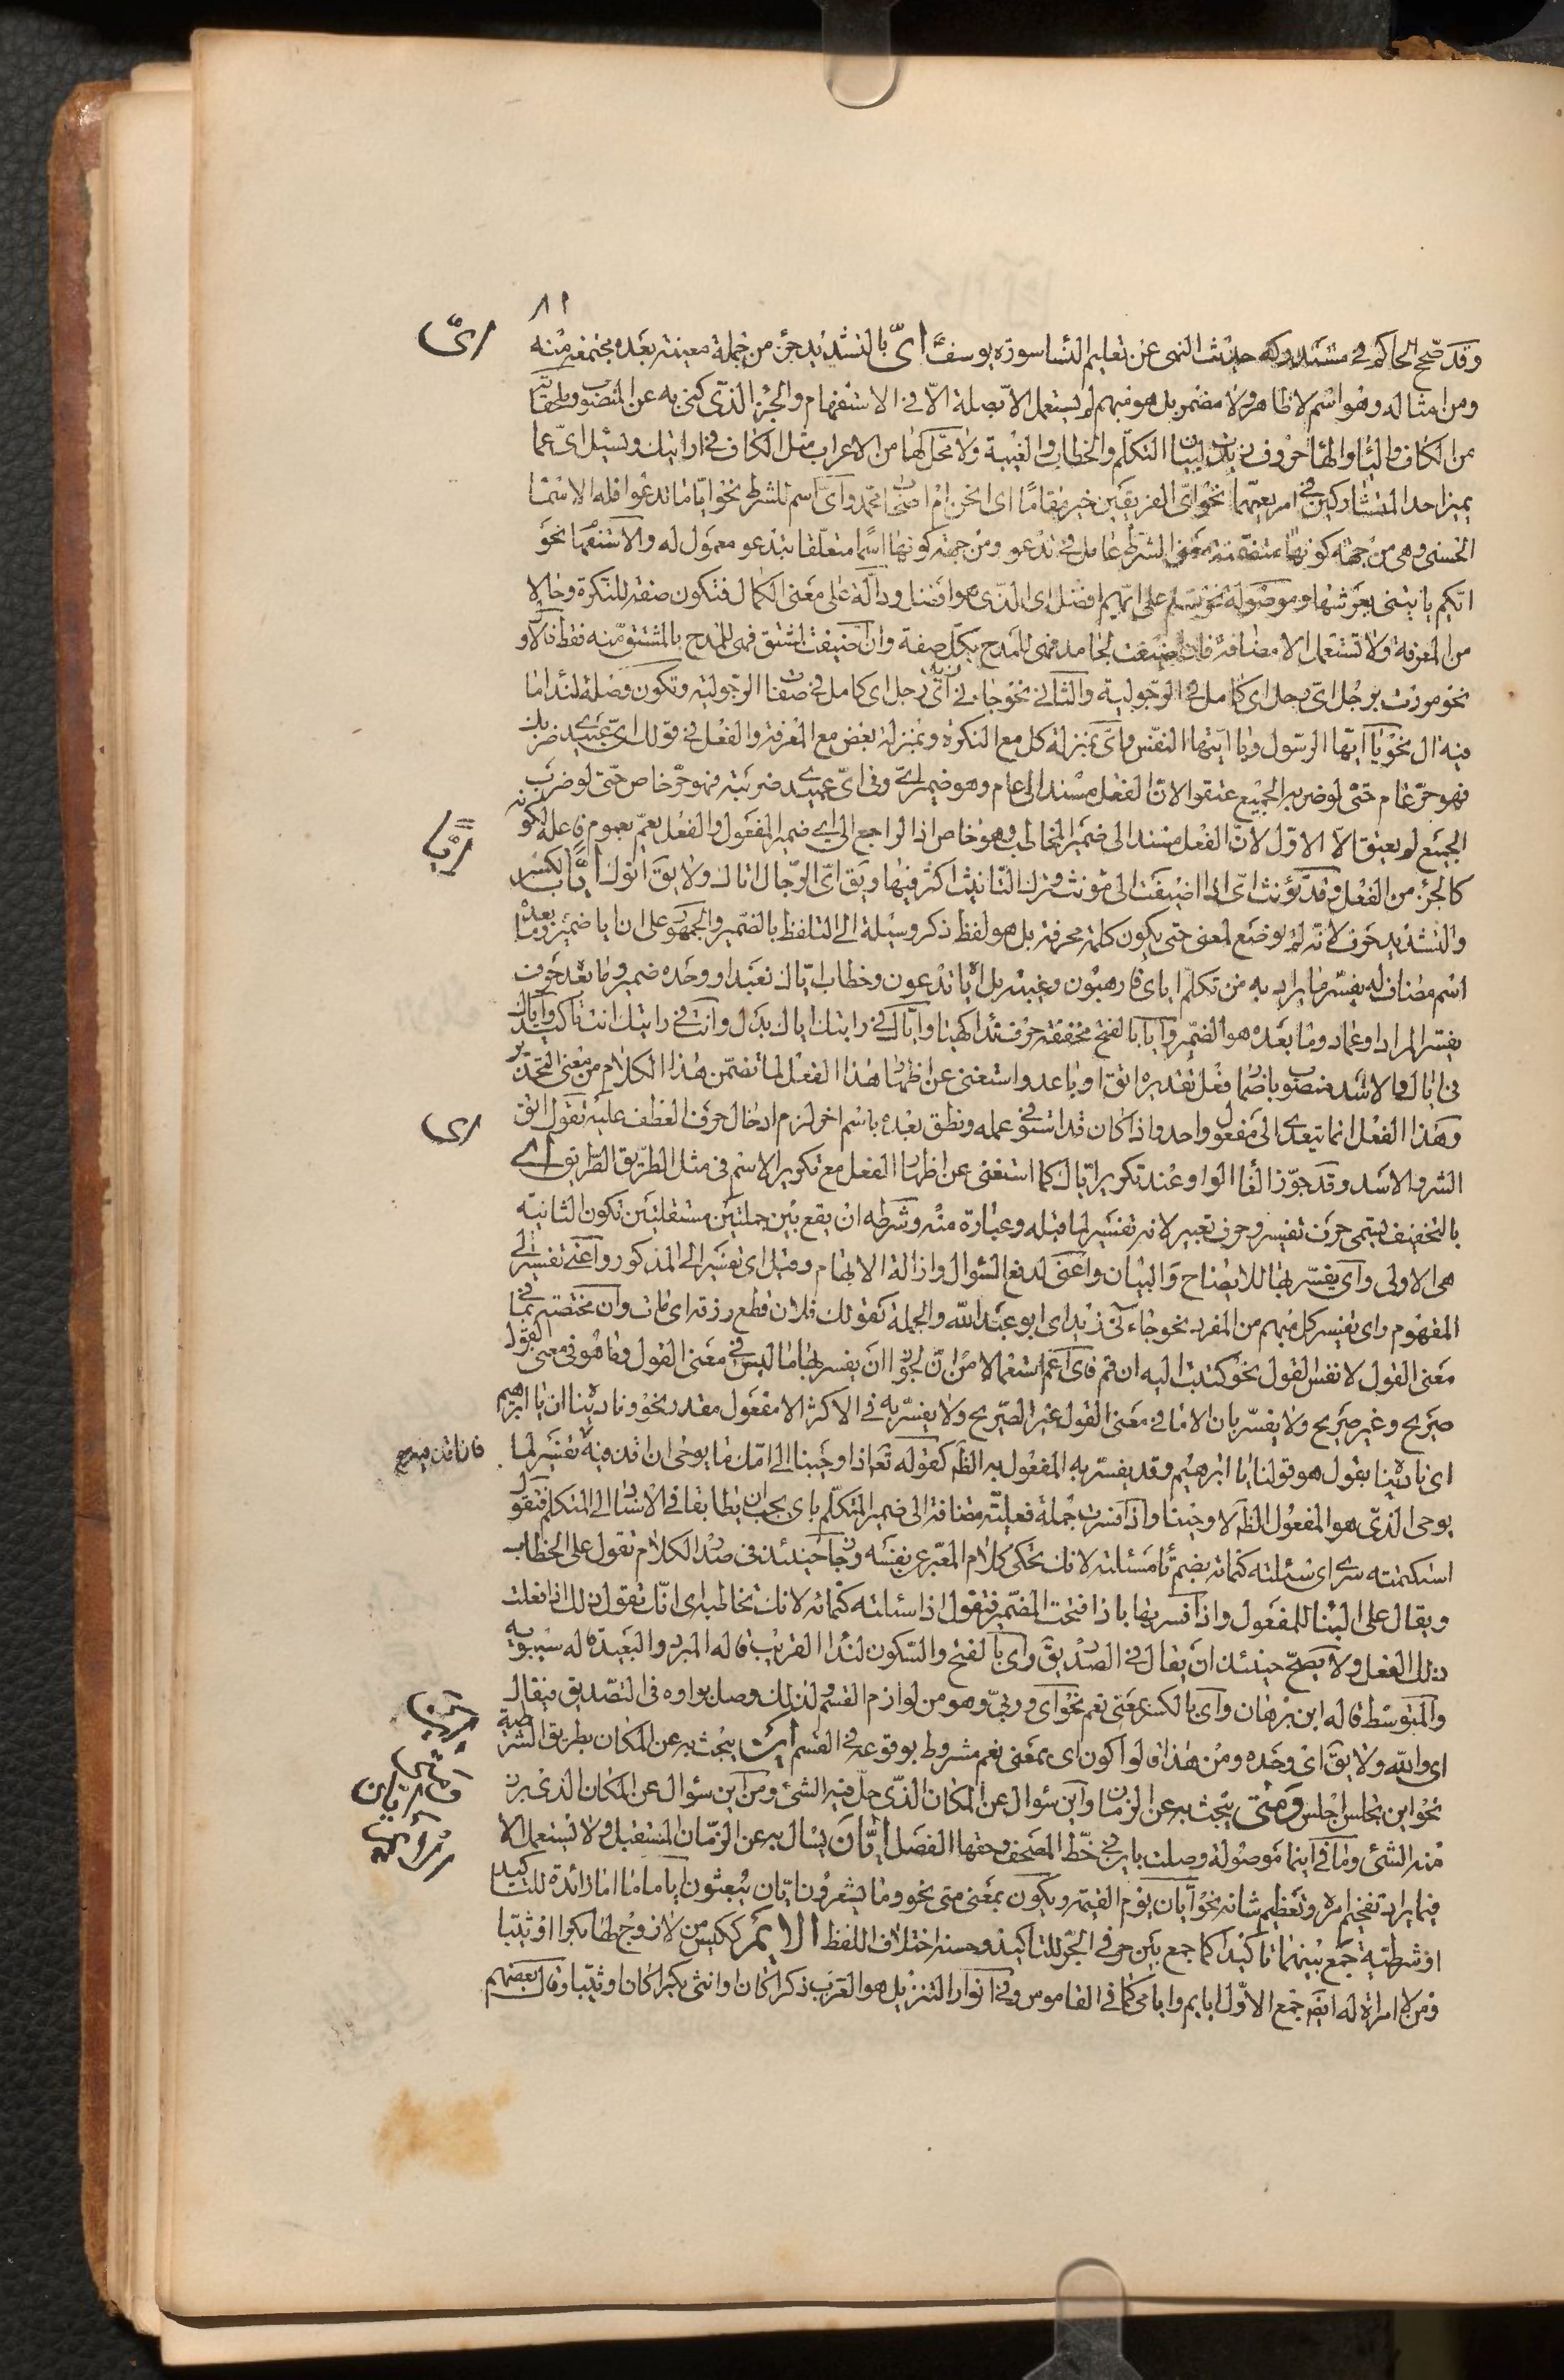 ٨١
وقد صحح الحاكم في مستدركه حديث النهى عن تعليم النسا سورة يوسف ايّ بالتشديد جزء من جملة معينة بعده مجتمعة منه
ومن امثاله وهو اسم لا ظاهر ولا مضمر بل هو مبهم لم يستعمل الا بصلة الا في الاستفهام والجزا الذى كنى به عن المنصوب
من الكاف واليا والها حروف زيدت لبيان التكلم والخطاب والغيبة ولا محل لها من الاعراب مثل الكاف في ارايتك ويسئل باي عما
يميز احد المتشاركين في امر يعمهما نحو اى الفريقين خير مقاما اى انحن ام اصحاب محمد واى اسم للشرط نحو ايا ما تدعوا فله الاسما
الحسنى وهى من جهة كونها متضمنة معنى الشرط عامل في تدعو ومن جهة كونها اسما متعلقا بتدعو معمول له والاستفهام نحو
ايكم ياتينى بعرشها وموصولة نحو سلم على ايهم افضل اى الذى هو افضل ودالة على معنى الكمال فتكون صفة للنكرة وحالا
من المعرفة ولا تستعمل الا مضافة فان اضيفت لجامد فهى للمدح بكل صفة وان اضيفت لمشتق فهى للمدح بالمشتق منه فقط فالاول
نحو مررت برجل اى رجل اى كامل في الرجولية والثانى نحو جاءنى زيد اى رجل اى كامل في صفات الرجولية وتكون وصلة لنداء ما
فيه ال نحو يا ايها الرسول ويا ايتها النفس واى بمنزلة كل مع النكرة وبمنزلة بعض مع المعرفة والفعل في قولك اى عبيدى ضربك
فهو حر عام حتى لو ضربه الجميع عتقوا لان الفعل مسند الى عام وهو ضمير اى وفى اى عبيدى ضربته فهو حر خاص حتى لو ضرب
الجميع لم يعتق الا الاول لان الفعل مسند الى ضمير المخاطب وهو خاص اذ الراجع الى اى ضمير المفعول والفعل يعم بعموم فاعله لكونه
كالجزء من الفعل وقد يؤنث اى اذا اضيفت الى مؤنث وترك التانيث اكثر فيها ويق اى الرجال اتاك ولا يق اتوك ايا بالكسر
والتشديد حرف لانه لم يوضع لمعنى حتى يكون كلمة محرفة بل هو لفظ ذكر وسيلة الى التلفظ بالضمير والجمهور على ان ايا ضمير وما بعده
اسم مضاف له يفسر ما يراد به من تكلم اياى فارهبون وغيبة بل اياه تدعون وخطاب اياك نعبد او وحده ضمير وما بعده حرف
يفسر المراد او عماد وما بعده هو الضمير وايا بالفتح مخففة حرف نداء كهيا واياك في رايتك اياك بدل وانت في رايتك انت تاكيد واياك
في اياك والاسد منصوب باضمار فعل تقديره اتق او باعد واستغنى عن اظهار هذا الفعل لما تضمن هذا الكلام من معنى التحذير
وهذا الفعل انما يتعدى الى مفعول واحد واذا كان قد استوفى عمله ونطق بعده باسم اخر لزم ادخال حرف العطف عليه تقول اتق
الشر والاسد وقد جوز الغاء الواو عند تكرير اياك كما استغنى عن اظهار الفعل مع تكرير الاسم في مثل الطريق الطريق اى
بالتخفيف يسمى حرف تفسير وحرف تعبير لانه تفسير لما قبله وعبارة منه وشرطه ان يقع بين جملتين مستقلتين تكون الثانية
هى الاولى واى يفسر بها للايضاح والبيان واعنى لدفع السؤال وازالة الابهام وقيل اى تفسير الى المذكور واعنى تفسير الى
المفهوم واى تفسير كل مبهم من المفرد نحو جاءنى زيد اى ابو عبد الله والجملة كقولك فلان قطع رزقه اى مات وان مختصة بما في
معنى القول لا نفس القول نحو كتبت اليه ان قم فاى اعم استعمالا من ان لجواز ان يفسر بها ما ليس في معنى القول وما هو في معنى القول
صريح وغير صريح ولا يفسر بان الا ما في معنى القول غير الصريح ولا يفسر به في الاكثر الا مفعول مقدر نحو وناديناه ان يا ابرهيم
اى ناديناه بقول هو قولنا يا ابرهيم وقد يفسر به المفعول به الظم كقوله تع اذ اوحينا الى امك ما يوحى ان اقذفيه تفسير لما
يوحى الذى هو المفعول الظم لاوحينا واذا فسرت جملة فعلية مضافة الى ضمير المتكلم باى يجب ان يطابقا في الاسناد الى المتكلم فتقول
استكتمته سرى اى سئلته كتمانه بضم تا سئلته لانك تحكى كلام المعبر عن نفسه وجاز حينئذ في صدر الكلام تقول على الخطاب
ويقال على البنا للمفعول واذا فسر بها باذا فتحت الضمير فتقول اذا سئلته كتمانه لانك تخاطبه اى انك تقول ذلك اذا فعلت
ذلك الفعل ولا يصح حينئذ ان يقال في الصدر يق واى بالفتح والسكون لنداء القريب قاله المبرد والبعيد قاله سيبويه
والمتوسط قاله ابن برهان واى بالكسر بمعنى نعم نحو اى وربى وهو من لوازم القسم ولذلك وصل بواوه في التصديق فيقال
اى والله ولا يق اى وحده ومن هذا قالوا كون اى بمعنى نعم مشروط بوقوعه في القسم اين يبحث به عن المكان بطريق الشرطية
نحو اين تجلس اجلس ومتى يبحث به عن الزمان واين سؤال عن المكان الذى حل فيه الشئ ومن اين سؤال عن المكان الذى برز
منه الشئ وما في اينما موصولة وصلت باين في خط المصحف وحقها الفصل ايان يسال به عن الزمان المستقبل ولا تستعمل الا
فيما يراد تفخيم امره وتعظيم شانه نحو ايان يوم القيمة ويكون بمعنى متى نحو وما يشعرون ايان يبعثون ايا ما ما اما زائدة للتاكيد
او شرطية جمع بينهما تاكيدا كما جمع بين حرفى الجر للتاكيد وحسنه اختلاف اللفظ الايم ككيس من لا زوج لها بكرا او ثيبا
ومن لا امراة له ايضم جمع الاول ايايم وايامى كما في القاموس وفى انوار التنزيل هو العزب ذكرا كان او انثى بكرا كان او ثيبا وقال بعضهم
اىّ
ايّا
اى
اين
ومتى
ايان